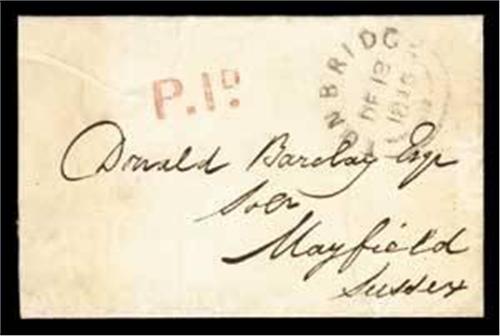 P.1D.
NBRIDG
DE 18
Donald Barclay Esqr
Solr
Mayfield
Sussex